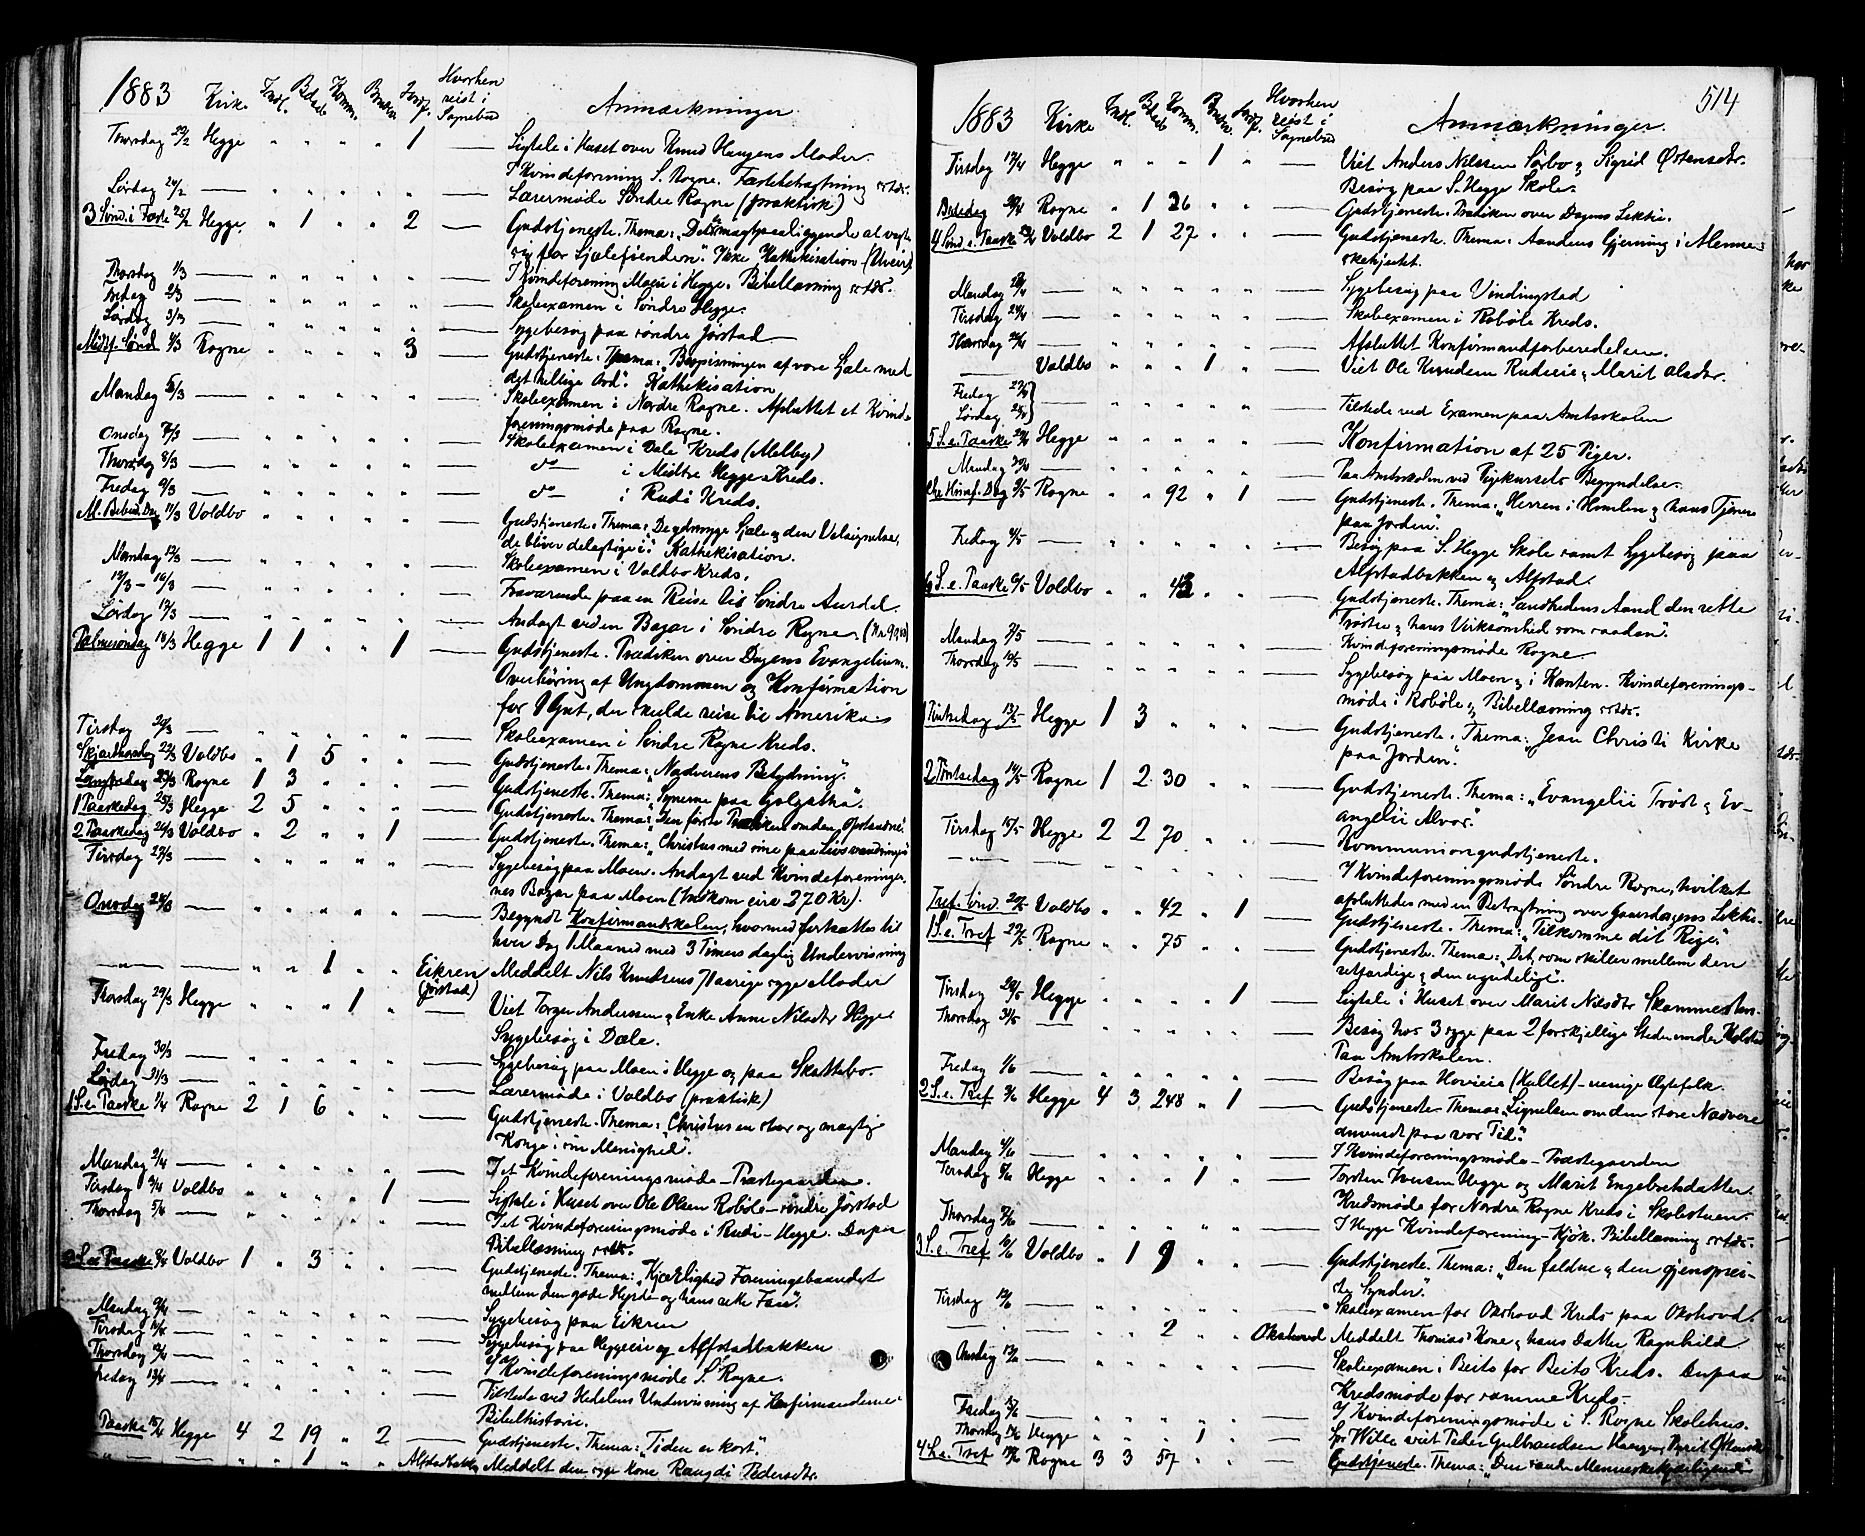 1883 Kirke Indl. Bdaab Komm. Brudev. Jordf. Hvorhen reist i Sognebud Anmærkninger
Thorsdag 22/2 Hegge " " " " 1 — Ligtale i Huset over Knud Haugens Moder.
I Kvindeforening S. Rogne.
Lørdag 24/2 — " " " " " — Lærermøde Søndre Rogne (praktisk)
3 Sønd. i Faste 25/2 Hegge " 1 " " 2 — Gudstjeneste. Thema: "Det magtpaaliggende at vogte
sig for Sjælefienden". Ikke Kathekisation (Uveir).
Thorsdag 1/3 — " " " " " — I Kvindeforening Moen i Hegge. Bibellæsning
Fredag 2/3 — " " " " " — Skoleexamen i Søndre Hegge.
Lørdag 3/3 — " " " " " — Sygebesøg paa søndre Jørstad
Midtf. Sønd 4/3 Rogne " " " " 3 — Gudstjeneste. Thema: "Bespisningen af vore Sjæle med
det hellige Ord". Kathekisation
Mandag 5/3 — " " " " " — Skoleexamen i Nordre Rogne. Afsluttet et Kvinde
foreningsmøde paa Rogne.
Onsdag 7/3 — " " " " " — Skoleexamen i Dale Kreds (Melby)
Thorsdag 8/3 — " " " " " — do — i Midtre Hegge Kreds.
Fredag 9/3 — " " " " " — do — i Rudi Kreds.
M. Bebud. Dag 11/3 Voldbo " " " " " — Gudstjeneste. Thema: "De ydmyge Sjæle og den Velsignelse,
de bliver delagtige i". Kathekisation.
Mandag 12/3 — " " " " " — Skoleexamen i Voldbo Kreds.
13/3 – 16/3 — " " " " " — Fraværende paa en Reise til Søndre Aurdal.
Lørdag 17/3 — " " " " " — Andagt ved en Bazar i Søndre Rogne
Palmesøndag 18/3 Hegge 1 1 " " 1 — Gudstjeneste. Prædiken over Dagens Evangelium.
Overhøring af Ungdommen og Konfirmation
for 1 Gut, der skulde reise til Amerika
Tirsdag 20/3 — " " " " " — Skoleexamen i Søndre Rogne Kreds.
Skjærthorsdag 22/3 Voldbo " 1 5 " " — Gudstjeneste. Thema: "Nadverens Betydning".
Langfredag 23/3 Rogne 1 3 " " " — Gudstjeneste. Thema: "Synerne paa Golgatha".
1 Paaskedag 25/3 Hegge 2 5 " " " — Gudstjeneste. Thema: "Den første Prædiken om den Opstandne".
2 Paaskedag 26/3 Voldbo " 2 " " 1 — Gudstjeneste. Thema: "Christus med sine paa Livsvandringen"
Tirsdag 27/3 — " " " " " — Sygebesøg paa Moen. Andagt ved Kvindeforeninger-
nes Bazar paa Moen (Indkom circa 270 Kr).
Onsdag 28/3 — " " " " " — Begyndt Konfirmandskolen, hvormed fortsattes til
hver Dag 1 Maaned med 3 Timers daglig Undervisning
— " — — " " 1 " " Eikren (Jørstad) Meddelt Nils Knudsens 71 aarige syge Moder
Thorsdag 29/3 Hegge " " " 1 " — Viet Torger Andersen og Enke Anne Nilsdtr Hegge
Sygebesøg i Dale.
Fredag 30/3 — " " " " " — Sygebesøg paa Moen i Hegge og paa Skattebo.
Lørdag 31/3 — " " " " " — Lærermøde i Voldbo (praktisk)
1 S. e. Paaske 1/4 Rogne 2 1 6 " " — Gudstjeneste. Thema: "Christus en stor og mægtig
Konge i sin Menighed".
Mandag 2/4 — " " " " " — I et Kvindeforeningsmøde – Præstegaarden.
Tirsdag 3/4 Voldbo " " " " 1 — Ligtale i Huset over Ole Olsen Robøle – søndre Jørstad
Thorsdag 5/4 — " " " " " — I et Kvindeforeningsmøde i Rudi – Hegge. Derpaa
Bibellæsning
2 S. e. Paaske 8/4 Voldbo 1 " 3 " " — Gudstjeneste. Thema: "Kjærlighed Foreningsbaandet
mellem den gode Hyrde og hans rette Faar".
Mandag 9/4 — " " " " " — Sygebesøg paa Eikren
Tirsdag 10/4 — " " " " " — Sygebesøg paa Heggeeie og Alfstadbakken
Thorsdag 12/4 — " " " " " — I Kvindeforeningsmøde S. Rogne.
Fredag 13/4 — " " " " " — Tilstede ved Hedelens Undervisning af Konfirmanderne i
Bibelhistorie.
Paaske 15/4 Hegge 4 2 19 " 2 — Gudstjeneste. Thema: "Tiden er kort".
" — — " " 1 " " Alfstadbakken Meddelt den syge Kone Rangdi Pedersdtr.
514
1883 Kirke Indl. Bdaab Komm. Brudev. Jordf. Hvorhen reist i Sognebud Anmærkninger.
Tirsdag 17/4 Hegge " " " 1 " — Viet Anders Nilssen Sørbo og Sigrid Østensdtr.
Besøg paa S. Hegge Skole.
Bededag 20/4 Rogne " 1 26 " " — Gudstjeneste. Prædiken over Dagens Lektie.
4 Sønd. e. Paaske 22/4 Voldbo 2 1 27 " " — Gudstjeneste. Thema: Aandens Gjerning i Menne-
skehjertet.
Mandag 23/4 — " " " " " — Sygebesøg paa Vindingstad
Tirsdag 24/4 — " " " " " — Skoleexamen i Robøle Kreds.
Thorsdag 26/4 — " " " " " — Afsluttet Konfirmandforberedelsen.
— Voldbo " " " 1 " — Viet Ole Knudsen Rudieie og Marit Olsdtr.
Fredag 27/4
Lørdag 28/4 — " " " " " — Tilstede ved Examen paa Amtsskolen
5 S. e. Paaske 29/4 Hegge " " " " " — Konfirmation af 25 Piger.
Mandag 30/4 — " " " " " — Paa Amtsskolen ved Pigekursets Begyndelse.
Chr. Himf. Dag 3/5 Rogne " " 92 " 1 — Gudstjeneste. Thema: "Herren i Himlen og hans Tjenere
paa Jorden".
Fredag 4/5 — " " " " " — Besøg paa S. Hegge Skole samt Sygebesøg paa
Alfstadbakken og Alfstad.
6 S. e. Paaske 6/5 Voldbo " " 43 " " — Gudstjeneste. Thema: "Sandhedens Aand den rette
Trøster og hans Virksomhed som saadan".
Mandag 7/5 — " " " " " — Kvindeforeningsmøde Rogne
Thorsdag 10/5 — " " " " " — Sygebesøg paa Moen og i Kanten. Kvindeforenings-
møde i Robøle og Bibellæsning
1 Pintsedag 13/5 Hegge 1 3 " " " — Gudstjeneste. Thema: "Jesu Christi Kirke
paa Jorden".
2 Pintsedag 14/5 Rogne 1 2 30 " " — Gudstjeneste. Thema: "Evangelii Trøst og Ev-
angelii Alvor".
Tirsdag 15/5 Hegge 2 2 70 " " — Kommuniongudstjeneste.
— " — — " " " " " — I Kvindeforeningsmøde Søndre Rogne, hvilket
afsluttedes med en Betragtning over Gaarsdagens Lektie.
Tref. Sønd. 20/5 Voldbo " " 42 " 1 — Gudstjeneste. Thema: "Tilkomme dit Rige".
1 S. e. Tref 27/5 Rogne " " 75 " " — Gudstjeneste. Thema: "Det, som skiller mellem den
retfærdige og den ugudelige".
Tirsdag 29/5 Hegge " " " " 1 — Ligtale i Huset over Marit Nilsdtr Skammesten
Thorsdag 31/5 — " " " " " — Besøg hos 3 syge paa 2 forskjellige Steder under
Paa Amtsskolen.
Fredag 1/6 — " " " " " — Besøg paa Hovieie (Hallet) – uenige Ægtefolk.
2 S. e. Tref 3/6 Hegge 4 3 248 " 1 — Gudstjeneste. Thema: "Lignelsen om den store Nadvere
anvendt paa vor Tid".
Mandag 4/6 — " " " " " — I Kvindeforeningsmøde – Præstegaarden
Tirsdag 5/6 Hegge " " " 1 " — Torsten Knutsen Hegge og Marit Engebretsdatter.
Kredsmøde for Nordre Rogne Kreds i Skolestuen.
Thorsdag 7/6 — " " " " " — I Hegge Kvindeforening – Kjøk. Bibellæsning
3 S. e. Tref 10/6 Voldbo " 1 9 " " — Gudstjeneste. Thema: "Den faldne og den gjenoprei-
ste Synder".
Tirsdag 12/6 — " " " " " — Skoleexamen for Okshovd Kreds paa Okshovd.
— " " 2 " " Okshovd Meddelt Thomas's Kone og hans Datter Ragnhild
Onsdag 13/6 — " " " " " — Skoleexamen i Beito for Beito Kreds. Derpaa
Kredsmøde for samme Kreds.
Fredag 15/6 — " " " " " — I Kvindeforeningsmøde i S. Rogne Skolehus.
Thorsdag 14/6 Hegge " " " 1 " — For Wille viet Peder Gulbrandsen Haugen og Marit
4 S. e. Tref 17/6 Rogne 3 3 57 " " — Gudstjeneste. Thema: "Den sande Menneskekjærlighed"